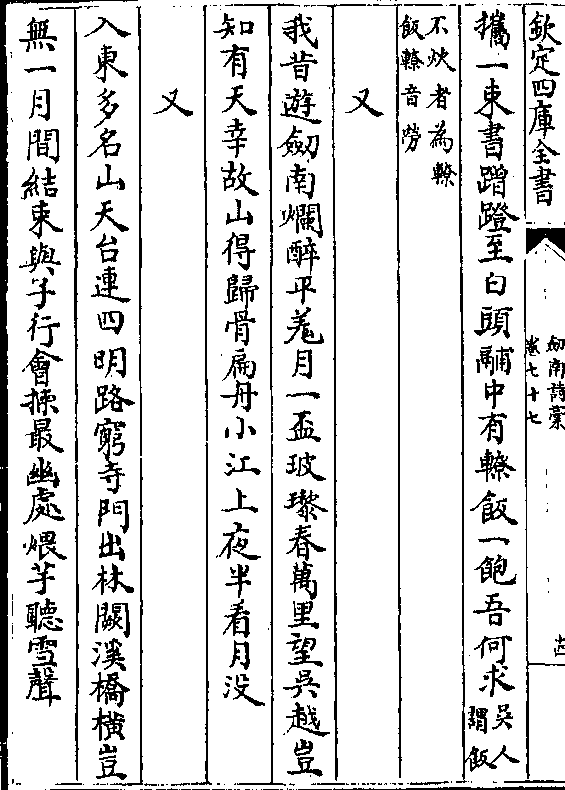 欽定四庫全書
劔南詩藁
卷七十七
十四
攜一束書蹭蹬至白頭鬴中有轑飯一飽吾何求吳人謂飯
不炊者為轑
飯轑音勞
又
我昔遊劔南爛醉平羗月一盃玻瓈春萬里望吳越豈
知有天幸故山得歸骨扁舟小江上夜半看月没
又
入東多名山天台連四明路窮寺門出林闕溪橋横豈
無一月間結束與子行會揀最幽處煨芋聽雪聲